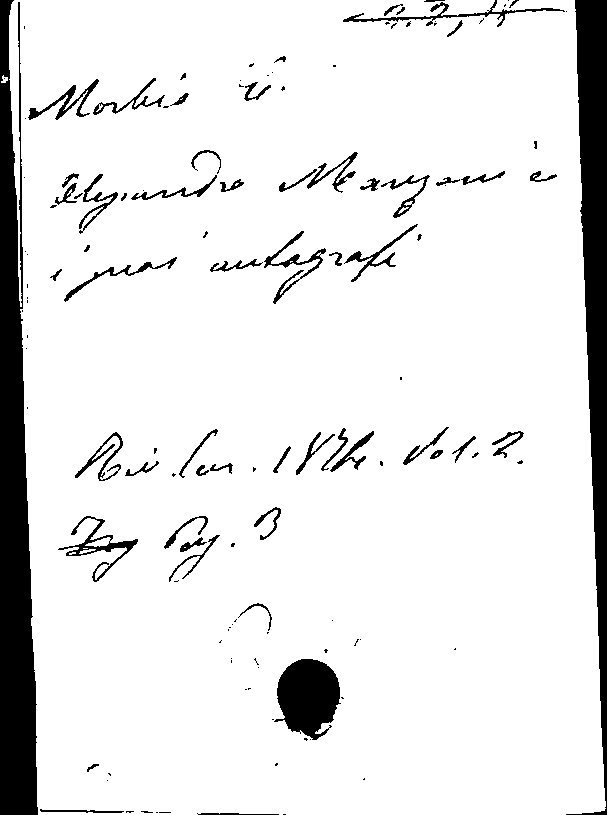 Morbio C.
Alessandro Manzoni e
i suoi autografi
Riv. Eur. 1874. Vol. 2.
Pag. 3